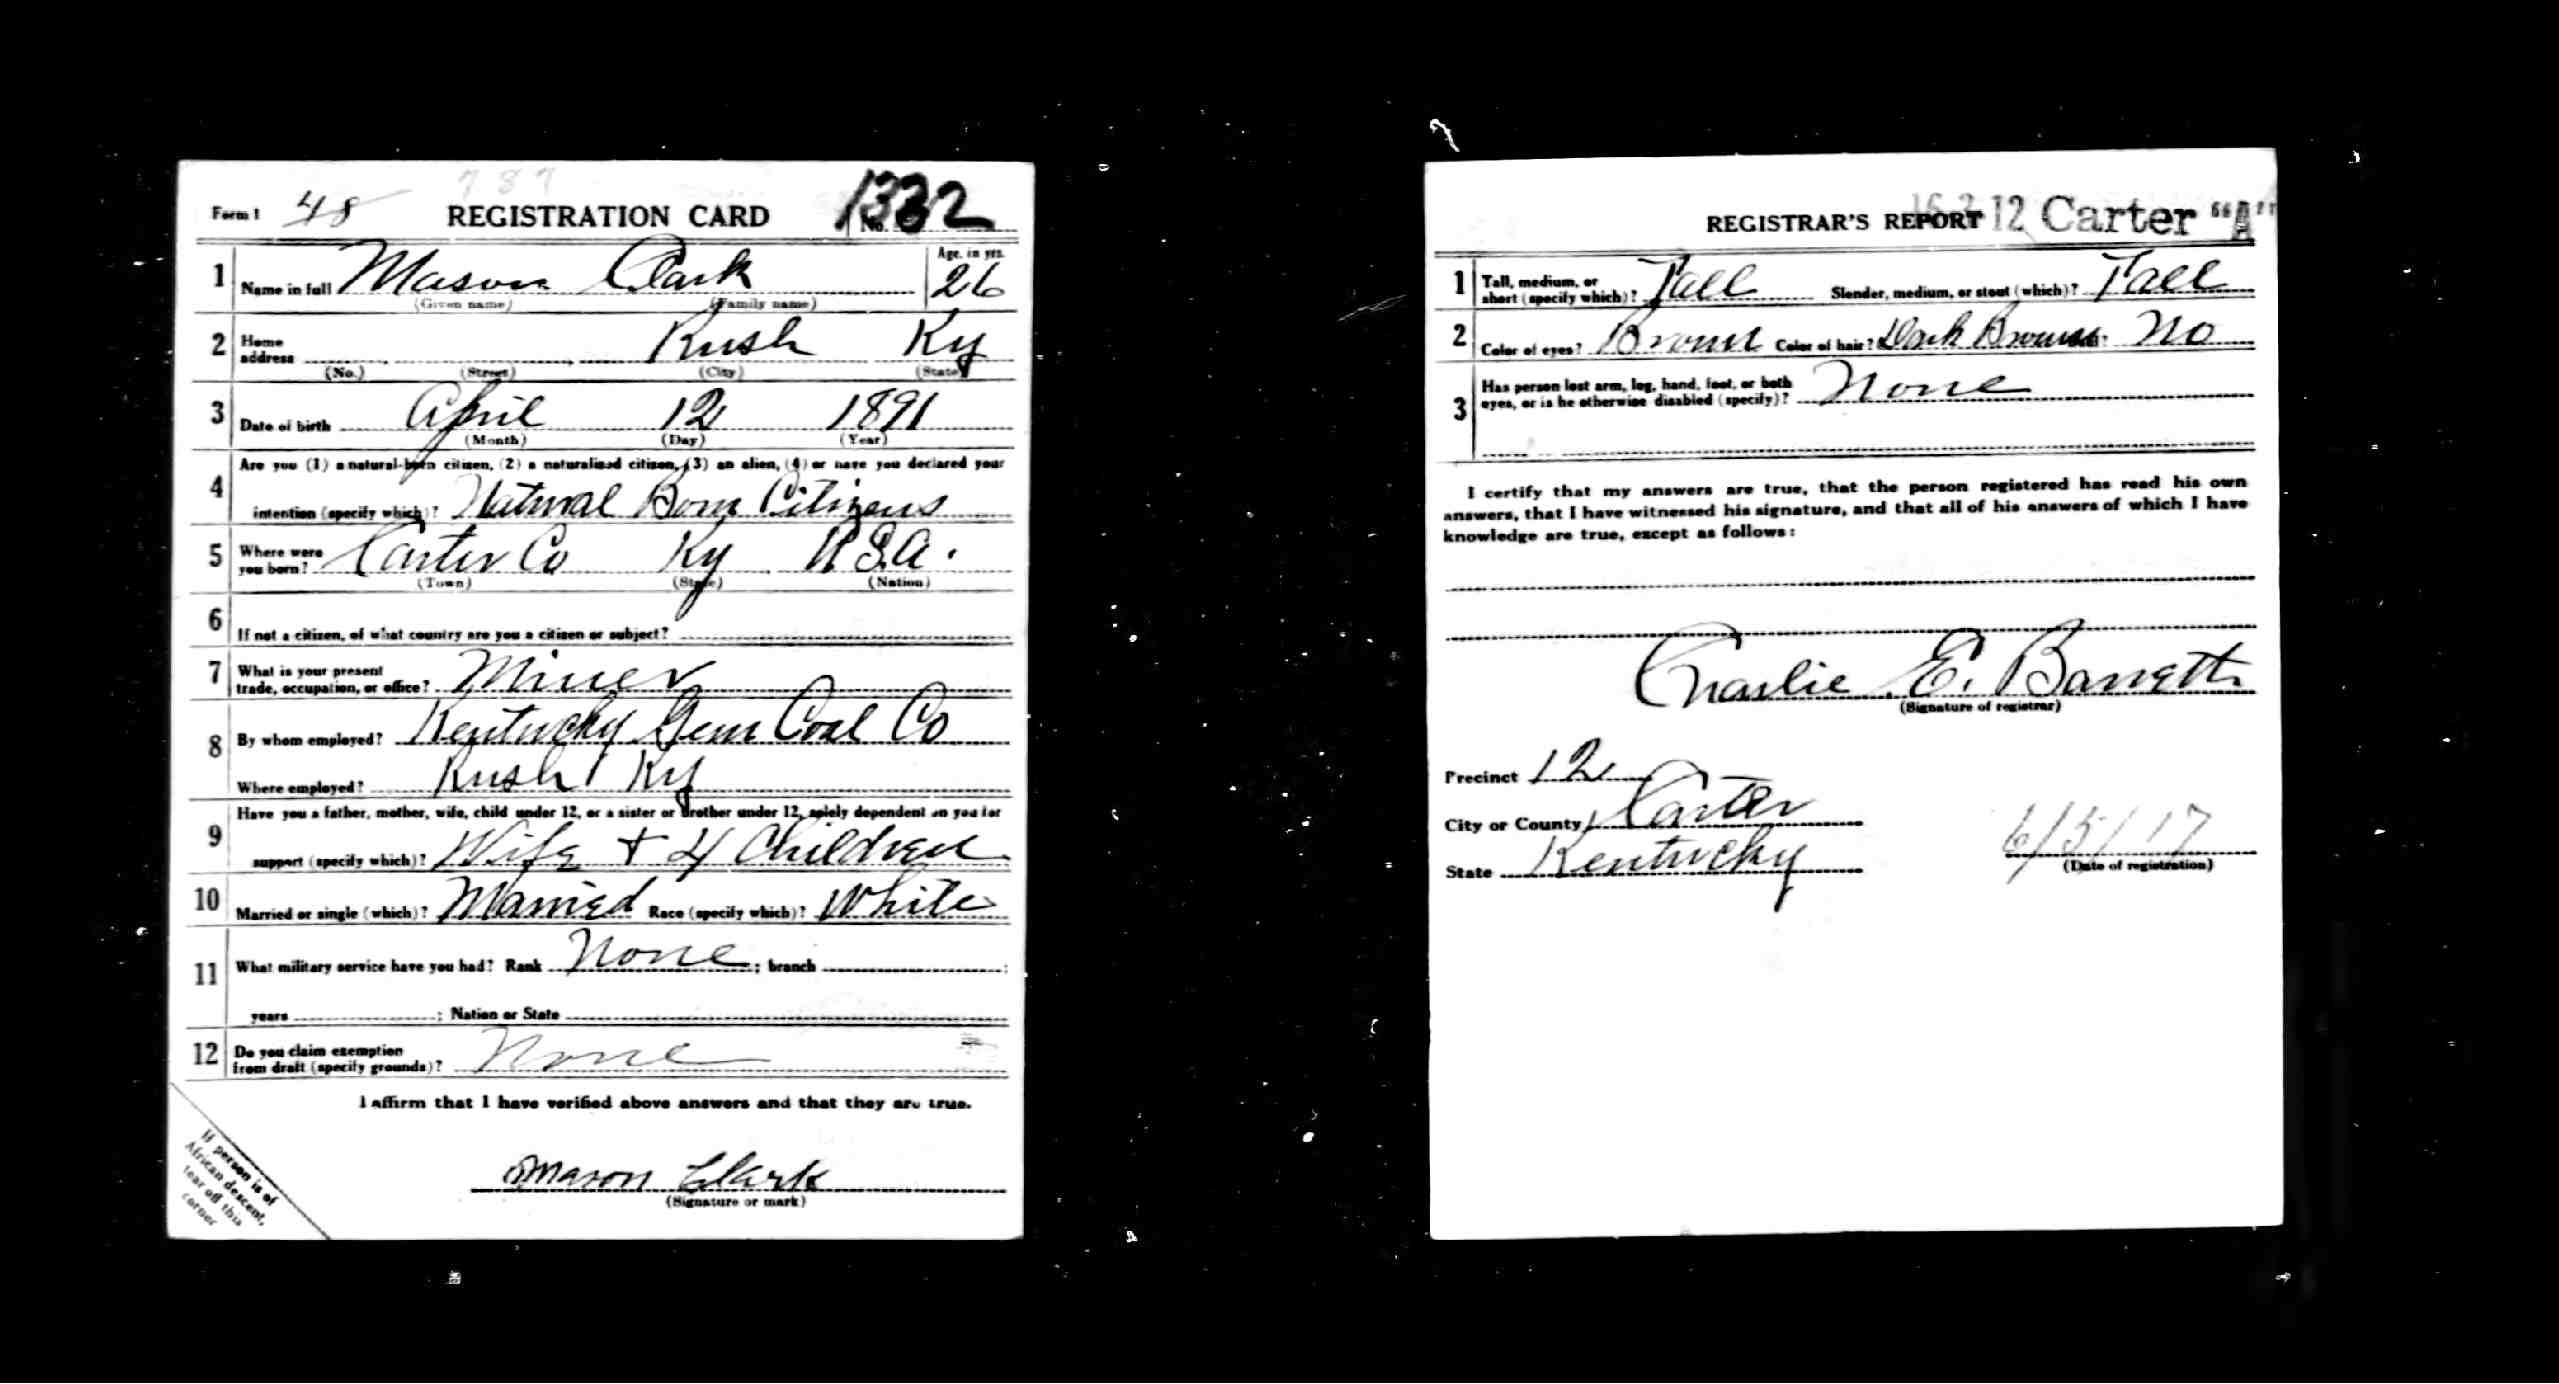 787
Form 1 48 REGISTRATION CARD No. 1332
1 Name in full Mason Clark Age, in yrs. 26
(Given name) (Family name)
2 Home address Rush Ky
(No.) (Street) (City) (State)
3 Date of birth April 12 1891
(Month) (Day) (Year)
Are you (1) a natural-born citizen, (2) a naturalized citizen, (3) an alien, (4) or have you declared your
4 intention (specify which)? Natural Born Citizens
5 Where were you born? Carter Co Ky U.S.A.
(Town) (State) (Nation)
6 If not a citizen, of what country are you a citizen or subject?
7 What is your present trade, occupation, or office? Miner
8 By whom employed? Kentucky Gem Coal Co
Where employed? Rush Ky
Have you a father, mother, wife, child under 12, or a sister or brother under 12, solely dependent on you for
9 support (specify which)? Wife + 4 Children
10 Married or single (which)? Married Race (specify which)? White
11 What military service have you had? Rank None ; branch
years ; Nation or State
12 Do you claim exemption from draft (specify grounds)? None
I affirm that I have verified above answers and that they are true.
Mason Clark
(Signature or mark)
If person is of
African descent,
tear off this
corner
REGISTRAR'S REPORT 12 Carter "A"
1 Tall, medium, or short (specify which)? Tall Slender, medium, or stout (which)? Tall
2 Color of eyes? Brown Color of hair? Dark Brown No
3 Has person lost arm, leg, hand, foot, or both eyes, or is he otherwise disabled (specify)? None
I certify that my answers are true, that the person registered has read his own
answers, that I have witnessed his signature, and that all of his answers of which I have
knowledge are true, except as follows:
Charlie E. Barrett
(Signature of registrar)
Precinct 12
City or County Carter
State Kentucky 6/5/17
(Date of registration)